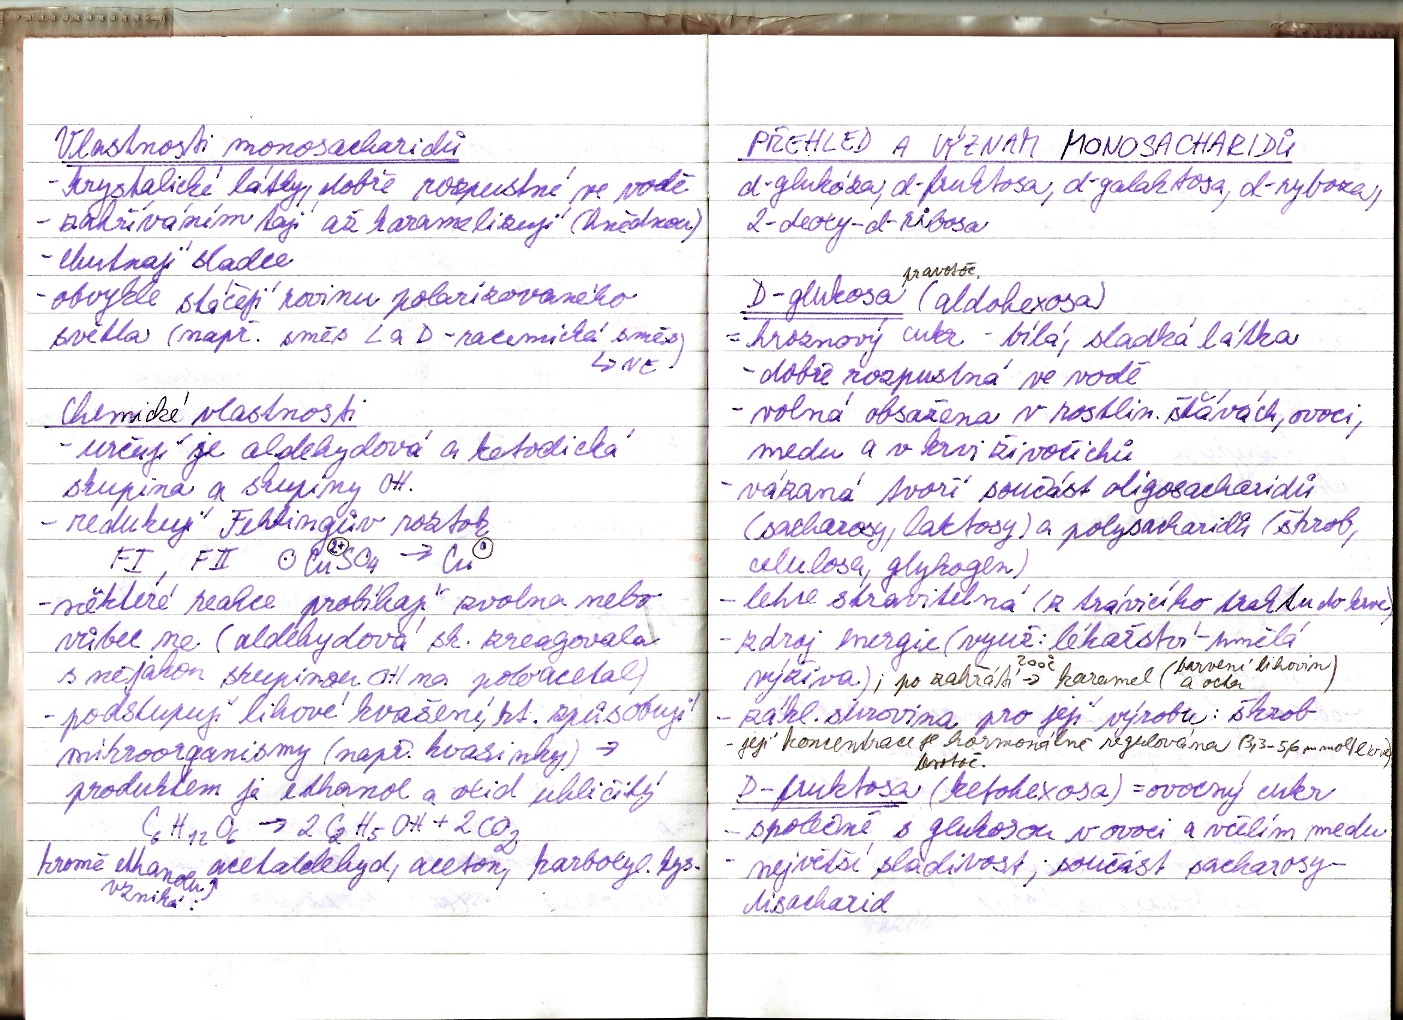 Vlastnosti monosacharidů
- krystalické látky, dobře rozpustné ve vodě
- zahříváním tají až karamelizují (hnědnou)
- chutnají sladce
- obvykle stáčejí rovinu polarizovaného
světla (např. směs L a D - racemická směs)
↳ NE
Chemické vlastnosti
- určují je aldehydová a ketodická
skupina a skupiny OH.
- redukují Fehlingův roztok
FI, FII Cu²⁺SO₄ → Cu⁰
- některé reakce probíhají zvolna nebo
vůbec ne (aldehydová sk. zreagovala
s nějakou skupinou OH na poloacetal)
- podstupují lihové kvašení, kt. způsobují
mikroorganismy (např. kvasinky) →
produktem je ethanol a oxid uhličitý
C₆H₁₂O₆ → 2 C₂H₅OH + 2CO₂
kromě ethanolu acetaldehyd, aceton, karboxyl. kys.
vzniká:
PŘEHLED A VÝZNAM MONOSACHARIDŮ
d-glukóza, d-fruktosa, d-galaktosa, d-ryboza,
2-deoxy-d-ribosa
pravotoč.
D-glukosa (aldohexosa)
= hroznový cukr - bílá, sladká látka
- dobře rozpustná ve vodě
- volná obsažena v rostlin. šťávách, ovoci,
medu a v krvi živočichů
- vázaná tvoří součást oligosacharidů
(sacharosy, laktosy) a polysacharidů (škrob,
celulosa, glykogen)
- lehce stravitelná (z trávicího traktu do krve)
- zdroj energie (využ: lékařství - umělá
výživa); po zahřátí 200° → karamel (barvení lihovin
a octa)
- zákl. surovina pro její výrobu: škrob
- její koncentrace je hormonálně regulována (3,3-5,6 mmol/l krve)
levotoč.
D-fruktosa (ketohexosa) = ovocný cukr
- společně s glukosou v ovoci a včelím medu
- největší sladivost; součást sacharosy-
disacharid